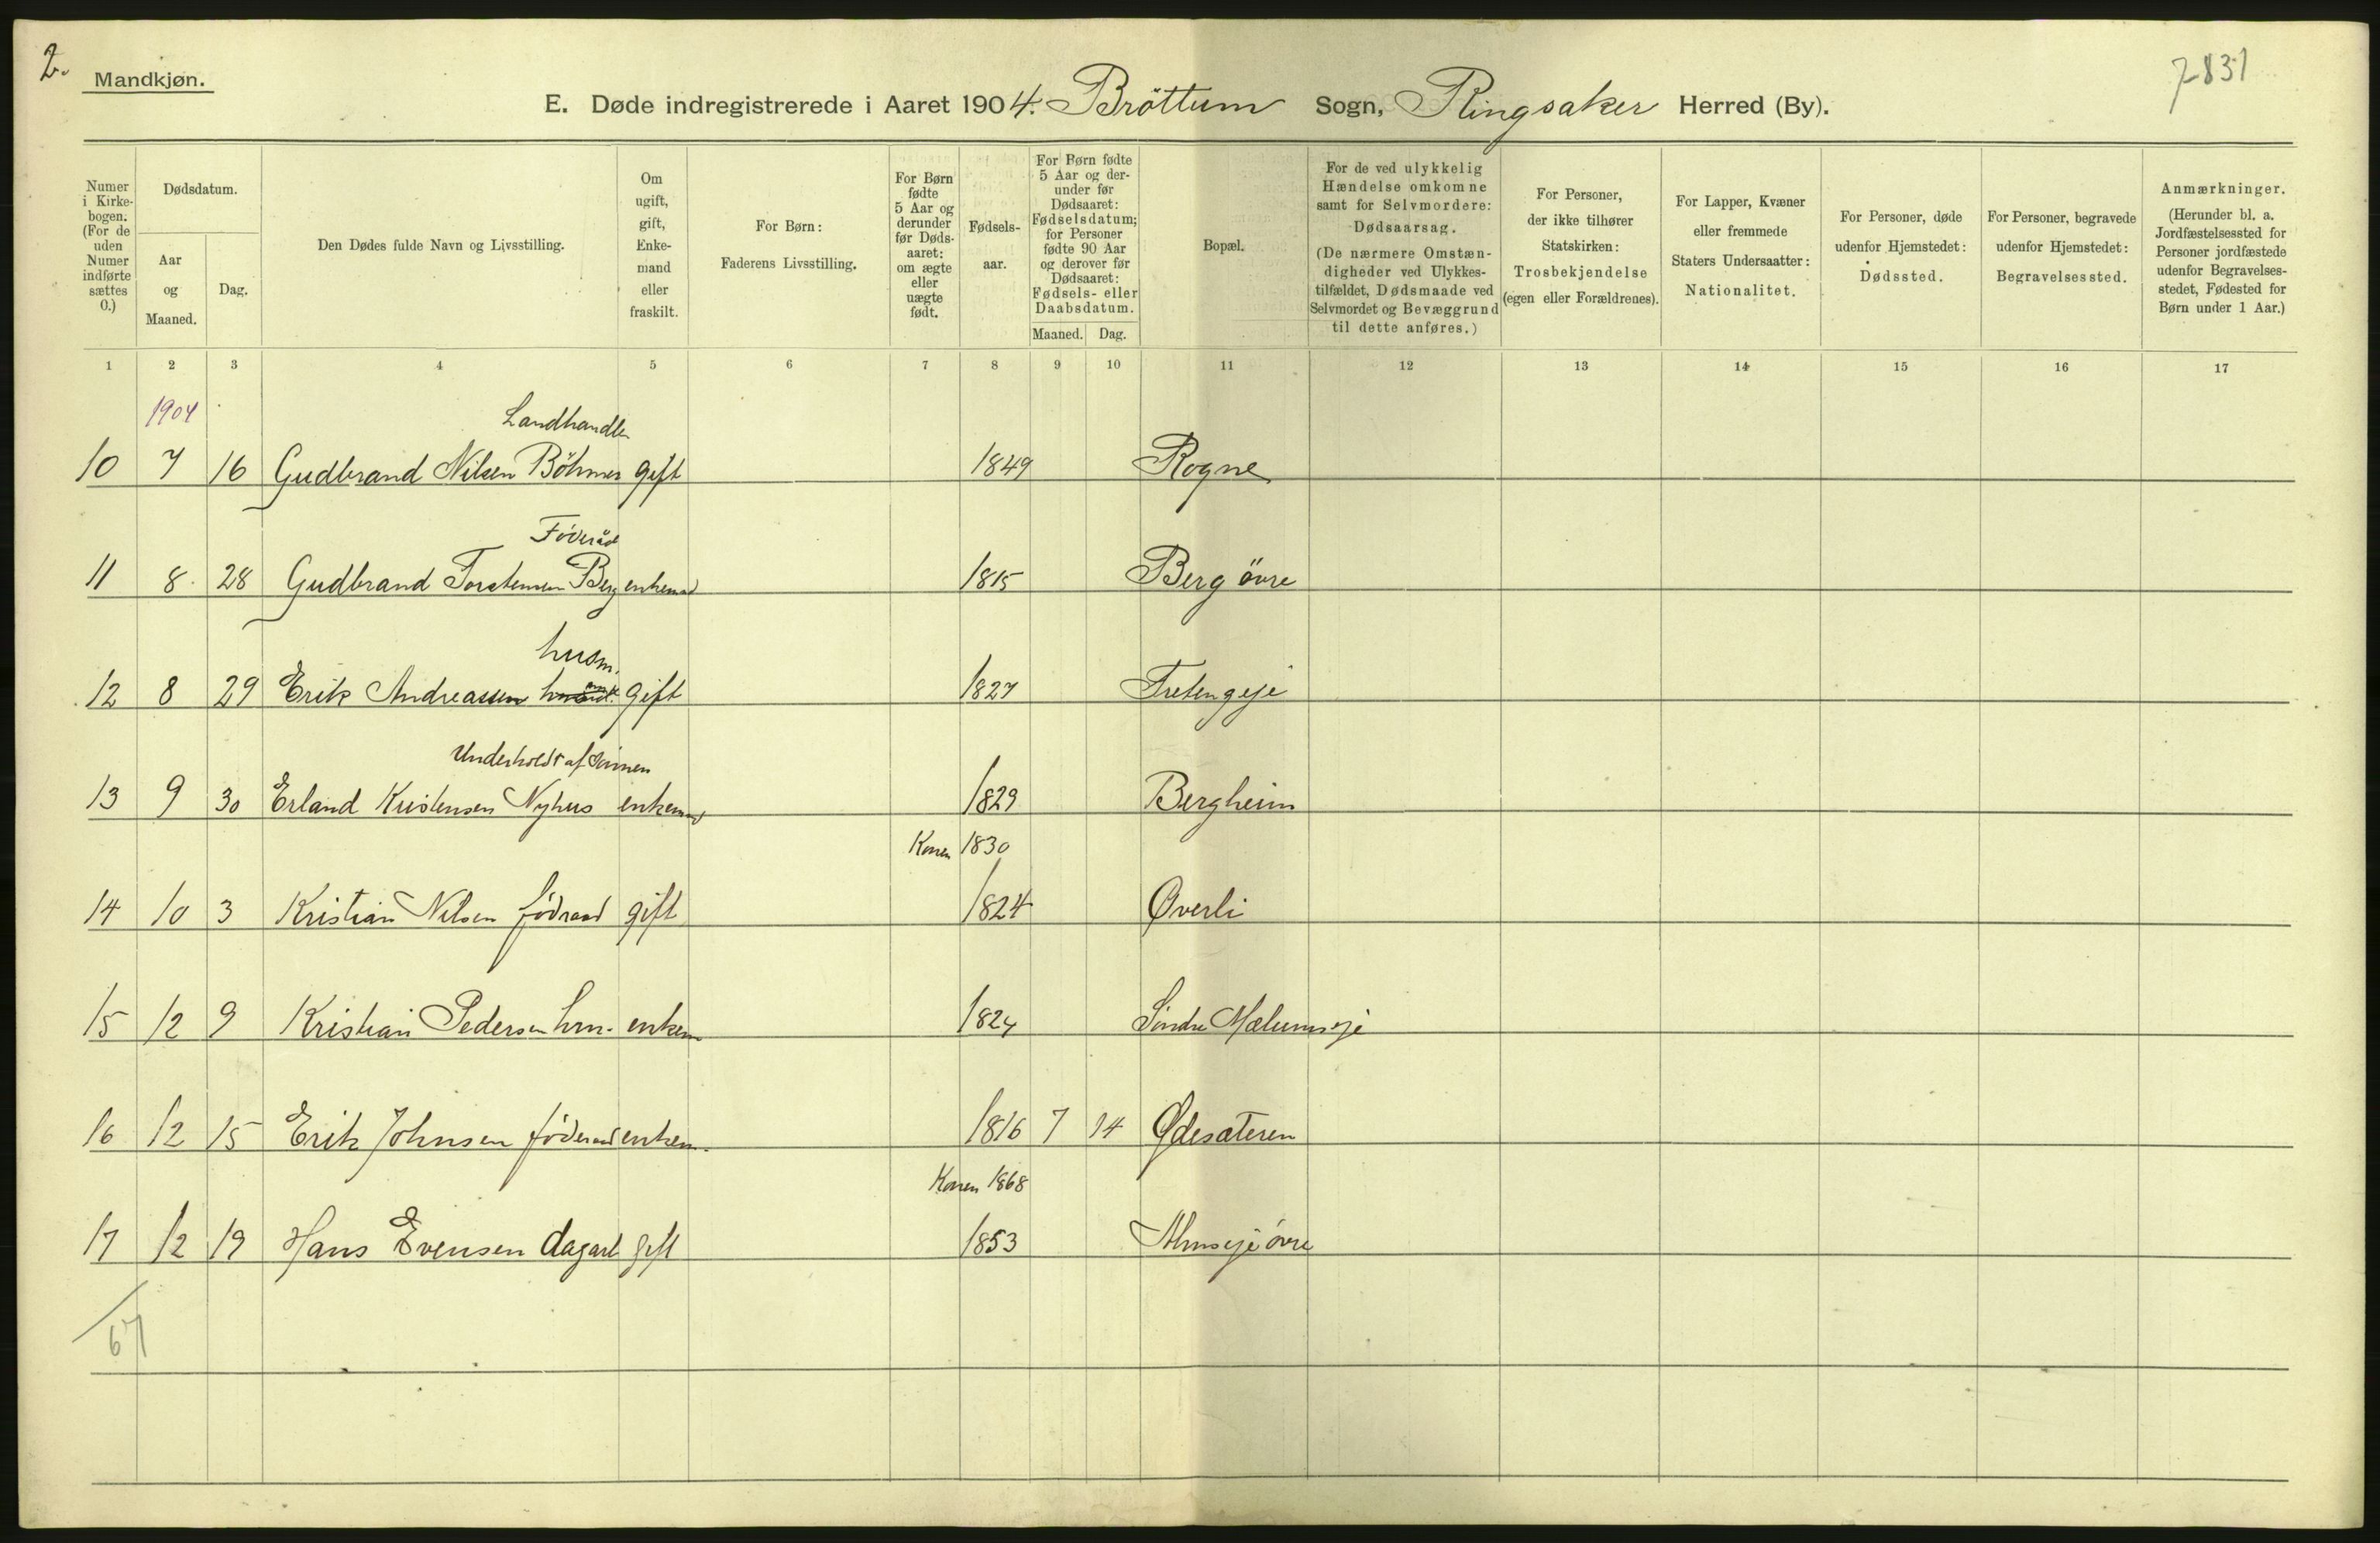 2.
Mandkjøn.
7831
E. Døde indregistrerede i Aaret 1904. Bröttum Sogn, Ringsaker Herred (By).
Numer i Kirkebogen. (For de uden Numer indførte sættes 0.)
Dødsdatum.
Aar og Maaned.
Dag.
Den Dødes fulde Navn og Livsstilling.
Om ugift, gift, Enkemand eller fraskilt.
For Børn: Faderens Livsstilling.
For Børn fødte 5 Aar og derunder før Dødsaaret: om ægte eller uægte født.
Fødselsaar.
For Børn fødte 5 Aar og derunder før Dødsaaret: Fødselsdatum; for Personer fødte 90 Aar og derover før Dødsaaret: Fødsels- eller Daabsdatum.
Maaned. Dag.
Bopæl.
For de ved ulykkelig Hændelse omkomne samt for Selvmordere: Dødsaarsag. (De nærmere Omstændigheder ved Ulykkestilfældet, Dødsmaade ved Selvmordet og Bevæggrund til dette anføres.)
For Personer, der ikke tilhører Statskirken: Trosbekjendelse (egen eller Forældrenes).
For Lapper, Kvæner eller fremmede Staters Undersaatter: Nationalitet.
For Personer, døde udenfor Hjemstedet: Dødssted.
For Personer, begravede udenfor Hjemstedet: Begravelsessted.
Anmærkninger. (Herunder bl. a. Jordfæstelsessted for Personer jordfæstede udenfor Begravelsesstedet, Fødested for Børn under 1 Aar.)
1 2 3 4 5 6 7 8 9 10 11 12 13 14 15 16 17
1904
Landhandler
10 7 16 Gudbrand Nilsen Böhmer gift 1849 Rogne
Föderåd
11 8 28 Gudbrand Torstensen Berg enkemand 1815 Berg övre
husm.
12 8 29 Erik Andreassen gift 1827 Fretengeje
Underholdt af Sönnen
13 9 30 Erland Kristensen Nyhus enkemand 1829 Bergheim
Konen 1830
14 10 3 Kristian Nilsen födraad gift 1824 Øverli
15 12 9 Kristian Pedersen hm. enkem 1824 Söndre Mælumseje
16 12 15 Erik Johnsen föderaad enkem. 1816 7 14 Ødesæteren
Konen 1868
17 12 19 Hans Evensen dagarb gift 1853 Almseje övre
67